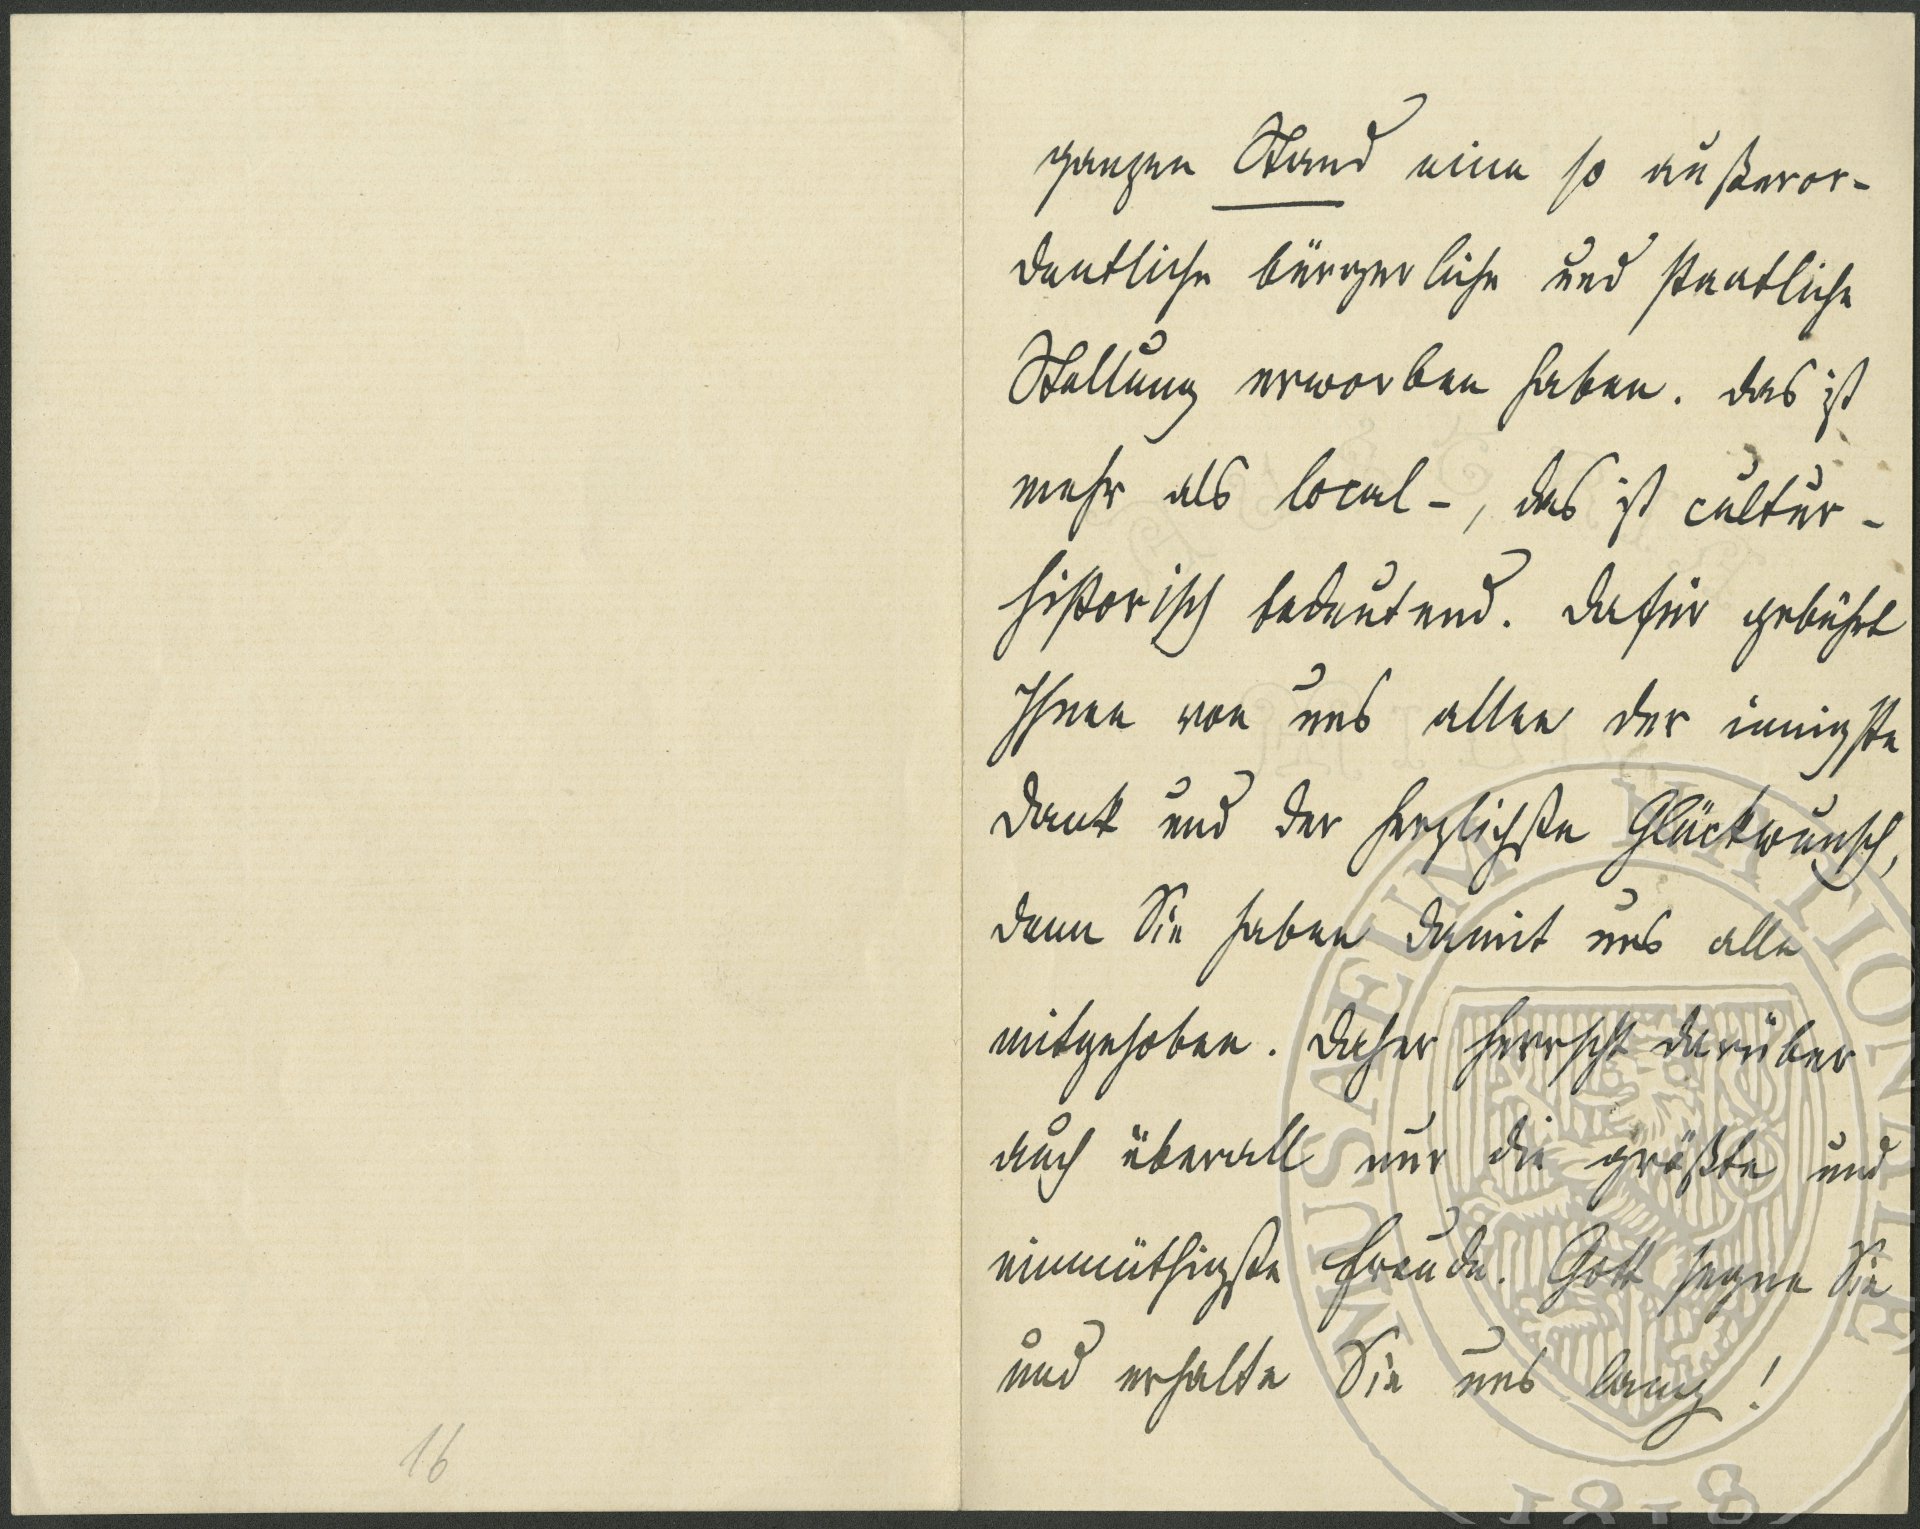 ganzen Stand eine so außeror-
dentliche bürgerliche und staatliche
Stellung erworben haben. Das ist
mehr als local-, das ist cultur-
historisch bedeutend. Dafür gebührt
Ihnen von uns allen der innigste
Dank und der herzlichste Glückwunsch,
denn Sie haben damit uns alle
mitgehoben. Daher herrscht darüber
auch überall nur die größte und
einmüthigste Freude. Gott segne Sie
und erhalte Sie uns lang!
16
MUSAEUM NATIONALE
1818